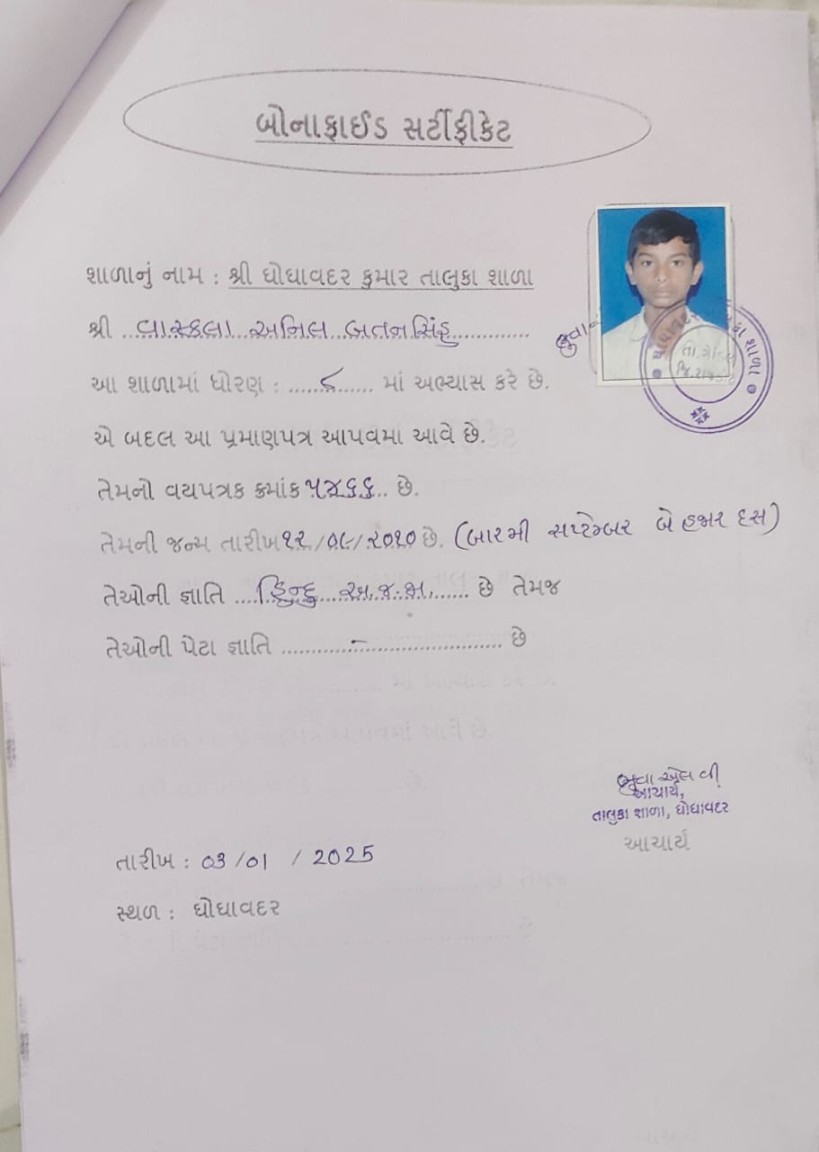 બોનાફાઈડ સર્ટીફીકેટ
શાળાનું નામ : શ્રી ઘોઘાવદર કુમાર તાલુકા શાળા
શ્રી ..વાસ્કલા અનિલ બતનસિંહ............
આ શાળામાં ધોરણ : ......૮...... માં અભ્યાસ કરે છે.
એ બદલ આ પ્રમાણપત્ર આપવમાં આવે છે.
તેમનો વયપત્રક ક્રમાંક ૫૪૬૬.. છે.
તેમની જન્મ તારીખ ૧૨/૦૯/૨૦૧૦ છે. (બારમી સપ્ટેમ્બર બે હજાર દસ)
તેઓની જ્ઞાતિ ....હિન્દુ...અ.જ.જા....... છે તેમજ
તેઓની પેટા જ્ઞાતિ ............-...................... છે
ભુવા એલ વી
આચાર્ય,
તાલુકા શાળા, ઘોઘાવદર
આચાર્ય
તારીખ : 03 /01 / 2025
સ્થળ : ઘોઘાવદર